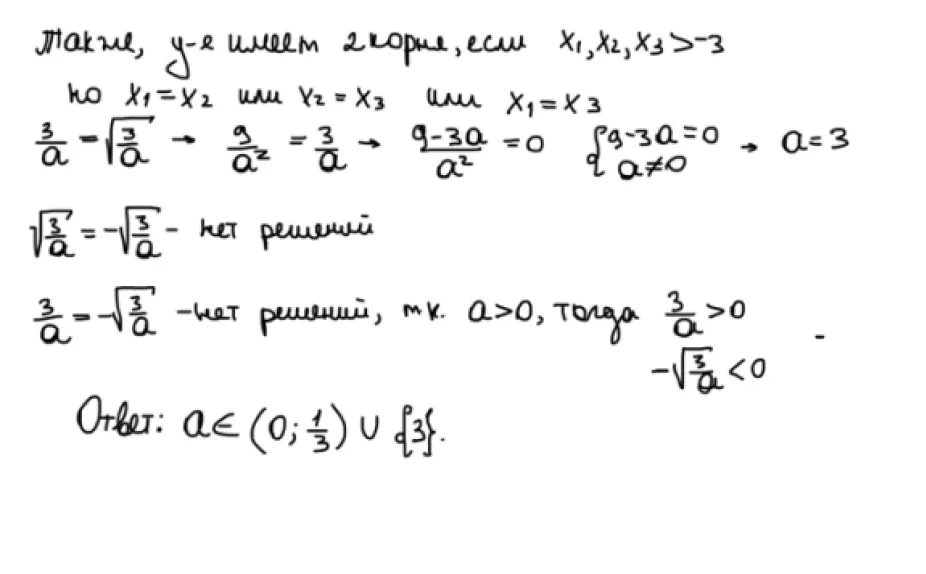 Также, у-е имеет 2 корня, если x₁, x₂, x₃ > -3
но x₁ = x₂ или x₂ = x₃ или x₁ = x₃
3/a = √(3/a) → 9/a² = 3/a → (9-3a)/a² = 0 { 9-3a=0 a≠0 → a=3
√(3/a) = -√(3/a) - нет решений
3/a = -√(3/a) - нет решений, т.к. a>0, тогда 3/a > 0
-√(3/a) < 0
Ответ: a∈(0; 1/3) ∪ {3}.